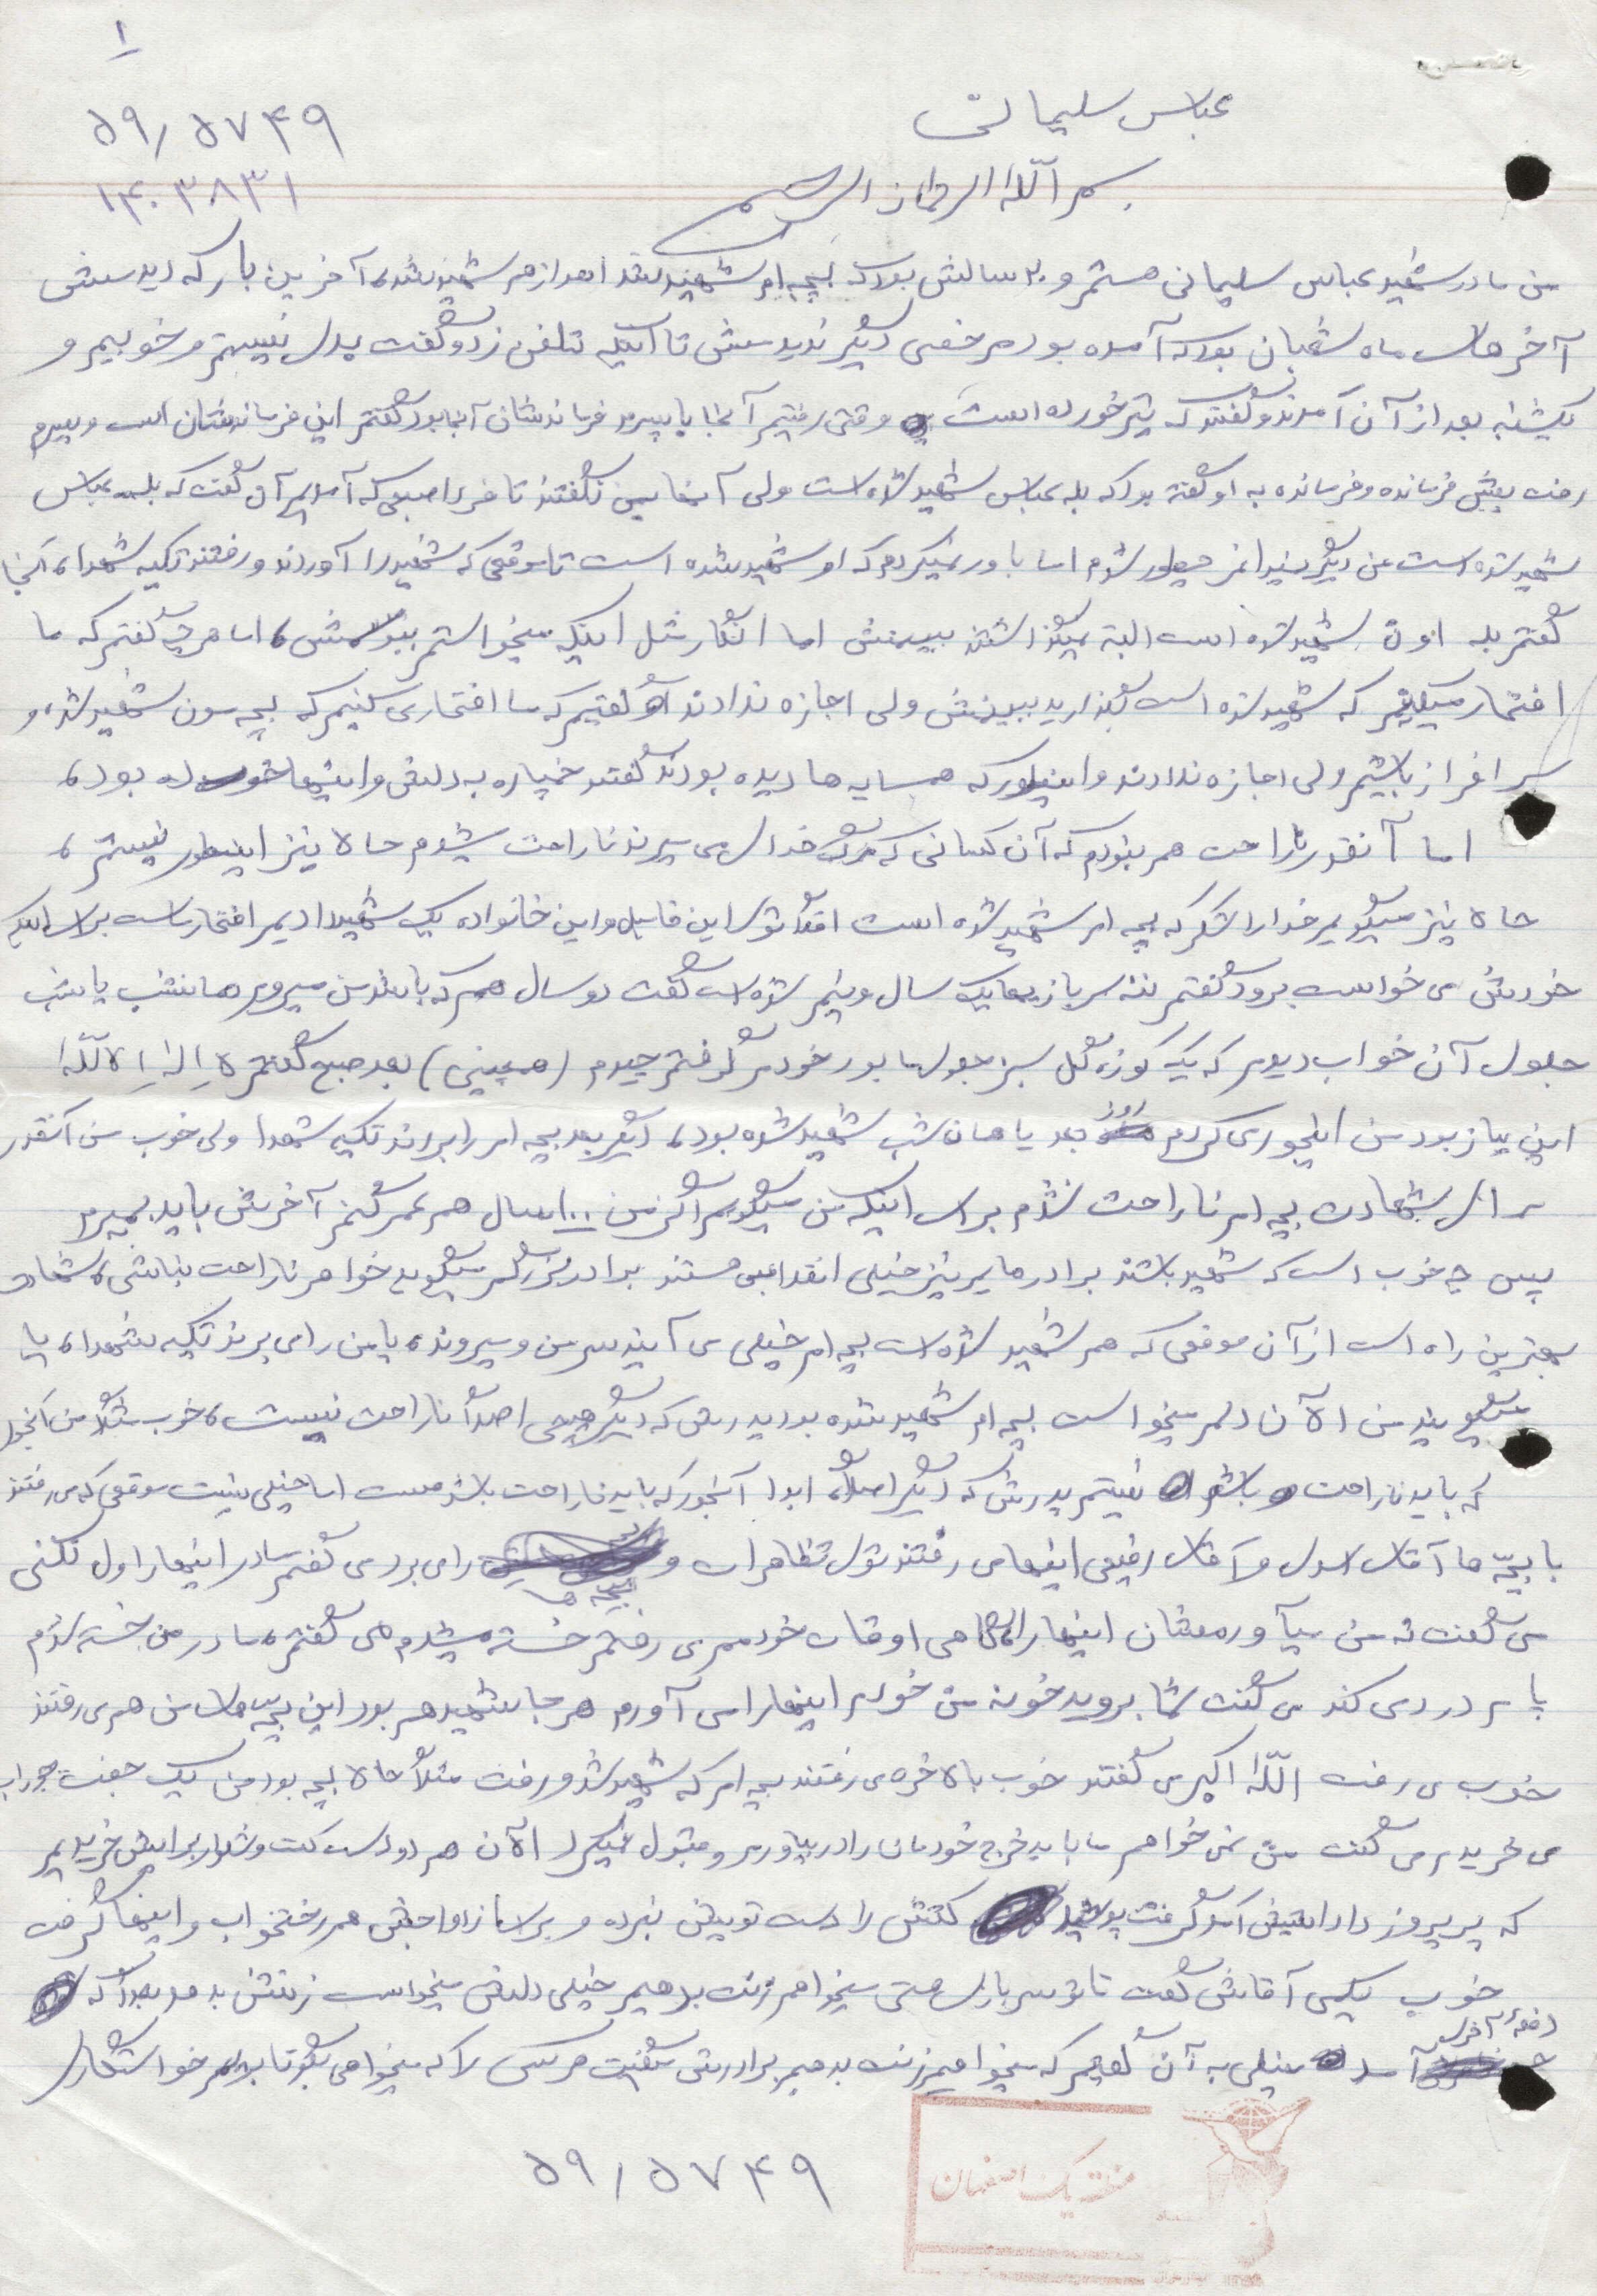 ۱
عباس سلیمانی
۵۹/۵۷۴۹
بسم الله الرحمان الرحیم
۱۴۰۳۸۳۱
من مادر شهید عباس سلیمانی هستم و ۲۰ سالش بود که بچه ام شهید شد اهواز هم شهید شد، آخرین بار که دیدمش
آخرهای ماه شعبان بود که آمده بود مرخصی دیگر ندیدمش تا اینکه تلفن زد و گفت بدل نیستم و خوبیم و
یکشنبه بعد از آن آمدند و گفتند که تیر خورده است وقتی رفتیم آنجا با پسرم فرماندشان آنجا بود گفتم این فرماندشان است و پسرم
رفت پیش فرمانده و فرمانده به او گفته بود که بله عباس شهید شده است ولی آنها بمن نگفتند تا فردا صبحی که آمدیم آن گفت که بله عباس
شهید شده است من دیگر نمیدانم چطور شدم اما باور نمیکردم که او شهید شده است تا موقعی که شهید را آوردند و رفتند تکیه شهدا، آنجا
گفتم بله اون شهید شده است البته نمیگذاشتند ببینمش اما انگار مثل اینکه میخواستم ببوسمش، اما هرچه گفتم که ما
افتخار میکنیم که شهید شده است بگذارید ببینمش ولی اجازه ندادند گفتیم که ما افتخاری کنیم که بچه مون شهید شد، و
سرافراز باشیم ولی اجازه ندادند و اینطور که همسایه ها دیده بودند گفتند خمپاره به دلش و اینها خورده بود،
اما آنقدر ناراحت هم نبودم که آن کسانی که مرگ خدایی می میرند ناراحت شدم حالا نیز اینطور نیستم،
حالا نیز میگویم خدا را شکر که بچه ام شهید شده است اقلا توی این فامیل و این خانواده یک شهید دادیم افتخار است برای اینکه
خودش می خواست برود گفتم ننه سربازیها یک سال و نیم شده است گفت دو سال هم که باشد من میروم همانشب یا شب
جلوی آن خواب دیدم که یک کوزه گل سبز جلوی ما بود خودم گرفتم چیدم (همچنین) بعد صبح گفتم لا اله الا الله
این پیاز بود من اینجوری کردم روز بعد یا همان شب شهید شده بود، دیگر بعد بچه ام را بردند تکیه شهدا ولی خوب من آنقدر
برای شهادت بچه ام ناراحت نشدم برای اینکه من میگویم اگر من ۱۰۰ سال هم عمر کنم آخرش باید بمیرم
پس چه خوب است که شهید باشند برادرهایم نیز خیلی انقلابی هستند برادر بزرگم میگوید خواهر ناراحت نباشی، شهادت
بهترین راه است از آن موقعی که هم شهید شده است بچه ام خیلی می آیند سر من و میروند، یا من را می برند تکیه شهدا، یا
میگویند من الآن دلم میخواست بچه ام شهید شده بود پدرش که دیگر هیچی اصلاً ناراحت نیست، خوب مثلاً من آنجور
که باید ناراحت باشم نیستم پدرش که دیگر اصلاً، ابدا آنجور که باید ناراحت باشد هست اما خیلی نیست موقعی که می رفتند
با بچّه ها آقای اسدی و آقای رفیعی اینها می رفتند توی تظاهرات و بچه ها را می برد می گفتم مادر اینها را ول نکنی
می گفت نه من میآورمشان اینها را، گاهی اوقات خودم می رفتم خسته میشدم می گفتم، مادر من خسته شدم
پایم درد می کند می گفت شما بروید خونه من خودم اینها را می آورم هر جا شهید هم بود این بچه های من هم می رفتند
خوب می رفت الله اکبر می گفتند خوب بالاخره می رفتند بچه ام که شهید شد و رفت مثلاً حالا بچه بود من یک جفت جوراب
می خریدم می گفت من نمی خواهم ما باید خرج خودمان را در بیاوریم و قبول نمیکرد الآن هم دو دست کت و شلوار برایش خریدیم
که پریروز داداشش آمد گرفت پوشید کتش را دست تویش نبرده و برای ازدواجش هم رختخواب و اینها گرفت
خوب یکی آقاش گفت تا توی سربازی هستی میخواهم زنت بدهیم خیلی دلش میخواست زنش بدهد بعداً که
دفعه آخری آمد خیلی به آن گفتیم که میخواهیم زنت بدهیم برادرش میگفت هر کسی را که میخواهی بگو تا برایم خواستگاری
۵۹/۵۷۴۹
منطقه یک اصفهان